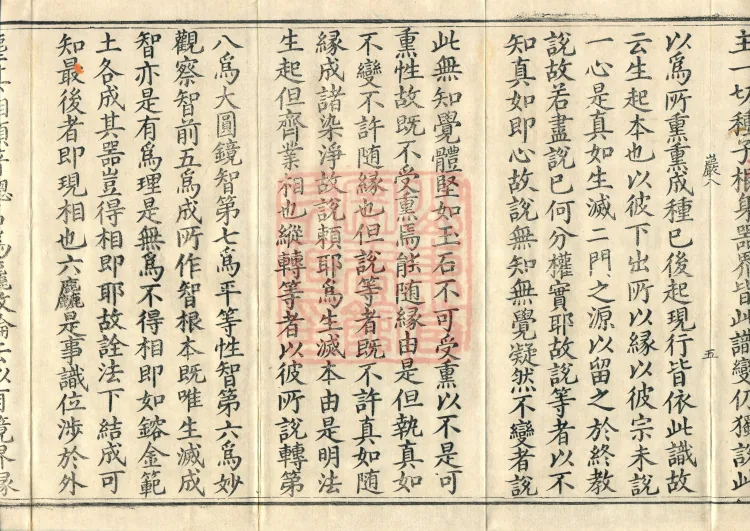 主一切種子相與器界皆此識變仍獨說此
以爲所熏熏成種已後起現行皆依此識故
云生起本也以彼下出所以緣以彼宗未說
一心是真如生滅二門之源以留之於終教
說故若盡說已何分權實耶故說等者以不
知真如即心故說無知無覺凝然不變者說
巖八
五
此無知覺體堅如玉石不可受熏以不是可
熏性故既不受熏焉能随緣由是但執真如
不變不許随緣也但說等者既不許真如随
緣成諸染淨故說頼耶爲生滅本由是明法
生起但齊業相也縱轉等者以彼所說轉第
八爲大圓鏡智第七爲平等性智第六爲妙
觀察智前五爲成所作智根本既唯生滅成
智亦是有爲理是無爲不得相即如鎔金範
土各成其器豈得相即耶故詮法下結成可
知最後者即現相也六麤是事識位涉於外